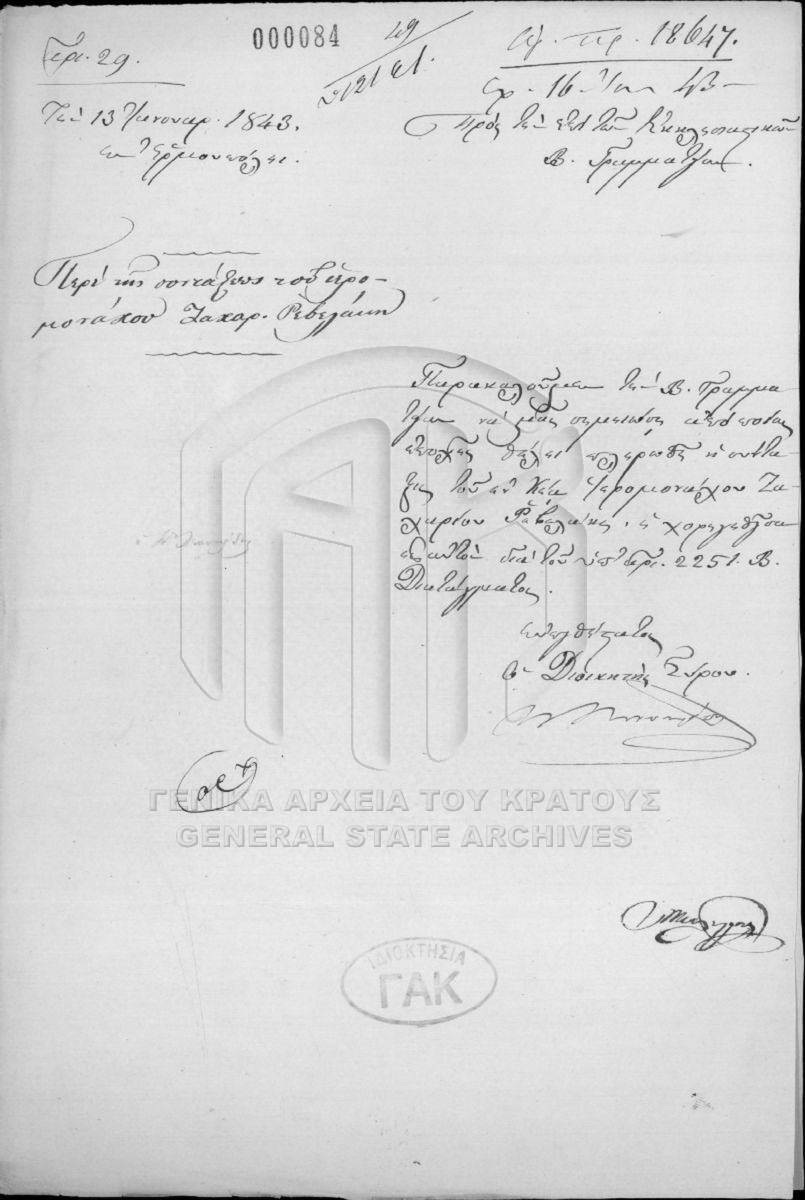 000084
Ἀρι. 29.
49
2121
Ἀρ. πρ. 18647.
16 Ἰαν 43
Τὴν 13 Ἰανουαρ. 1843.
ἐν Ἑρμουπόλει.
Πρὸς τὴν ἐπὶ τῶν Ἐκκλησιαστικῶν
Β. Γραμματείαν.
Περὶ τῆς συντάξεως τοῦ ἱερο-
μονάχου Ζαχαρ. Ρεβελάκη
Παρακαλοῦμεν τὴν Β. Γραμμα
τείαν νὰ μᾶς σημειώσῃ ἀπὸ ποίας
ἐποχῆς θέλει πληρωθῆ ἡ συντα
ξις τοῦ ἐν Κέᾳ Ἱερομονάχου Ζα
χαρίου Ρεβελάκη, ἡ χορηγηθεῖσα
εἰς αὐτὸν διὰ τοῦ ὑπ' ἀρι. 2251. Β.
Διατάγματος.
εὐπειθέστατος
Ὁ Διοικητὴς Σύρου.
ΓΕΝΙΚΑ ΑΡΧΕΙΑ ΤΟΥ ΚΡΑΤΟΥΣ
GENERAL STATE ARCHIVES
ΙΔΙΟΚΤΗΣΙΑ
ΓΑΚ